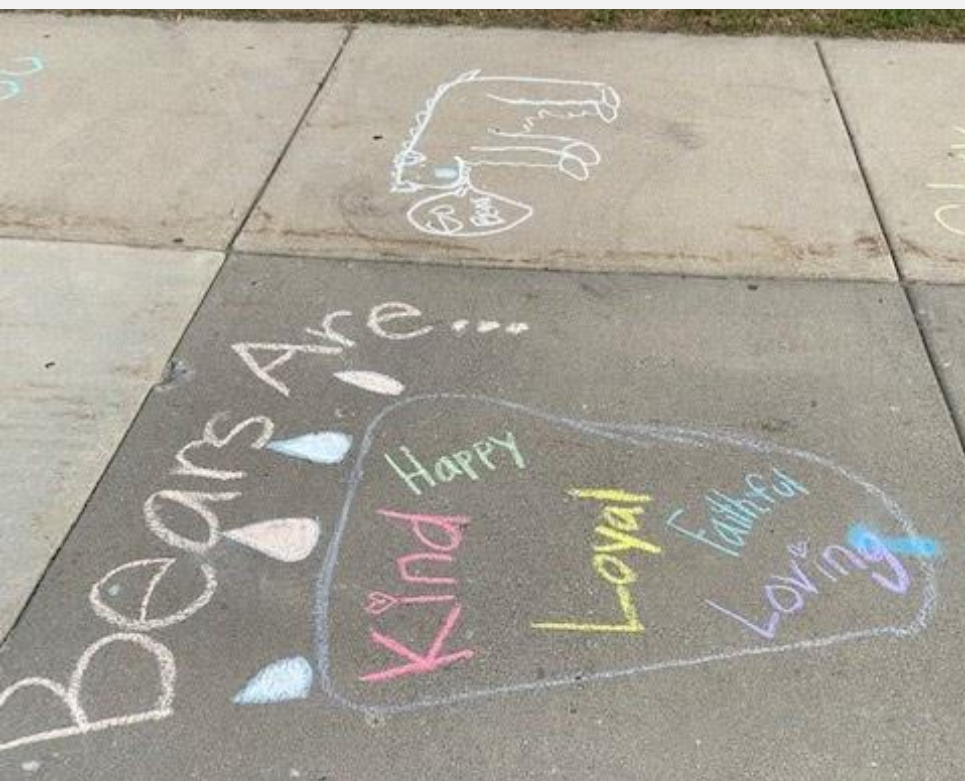 GO
BEARS
Bears Are...
Happy
Kind
Loyal
Faithful
Loving